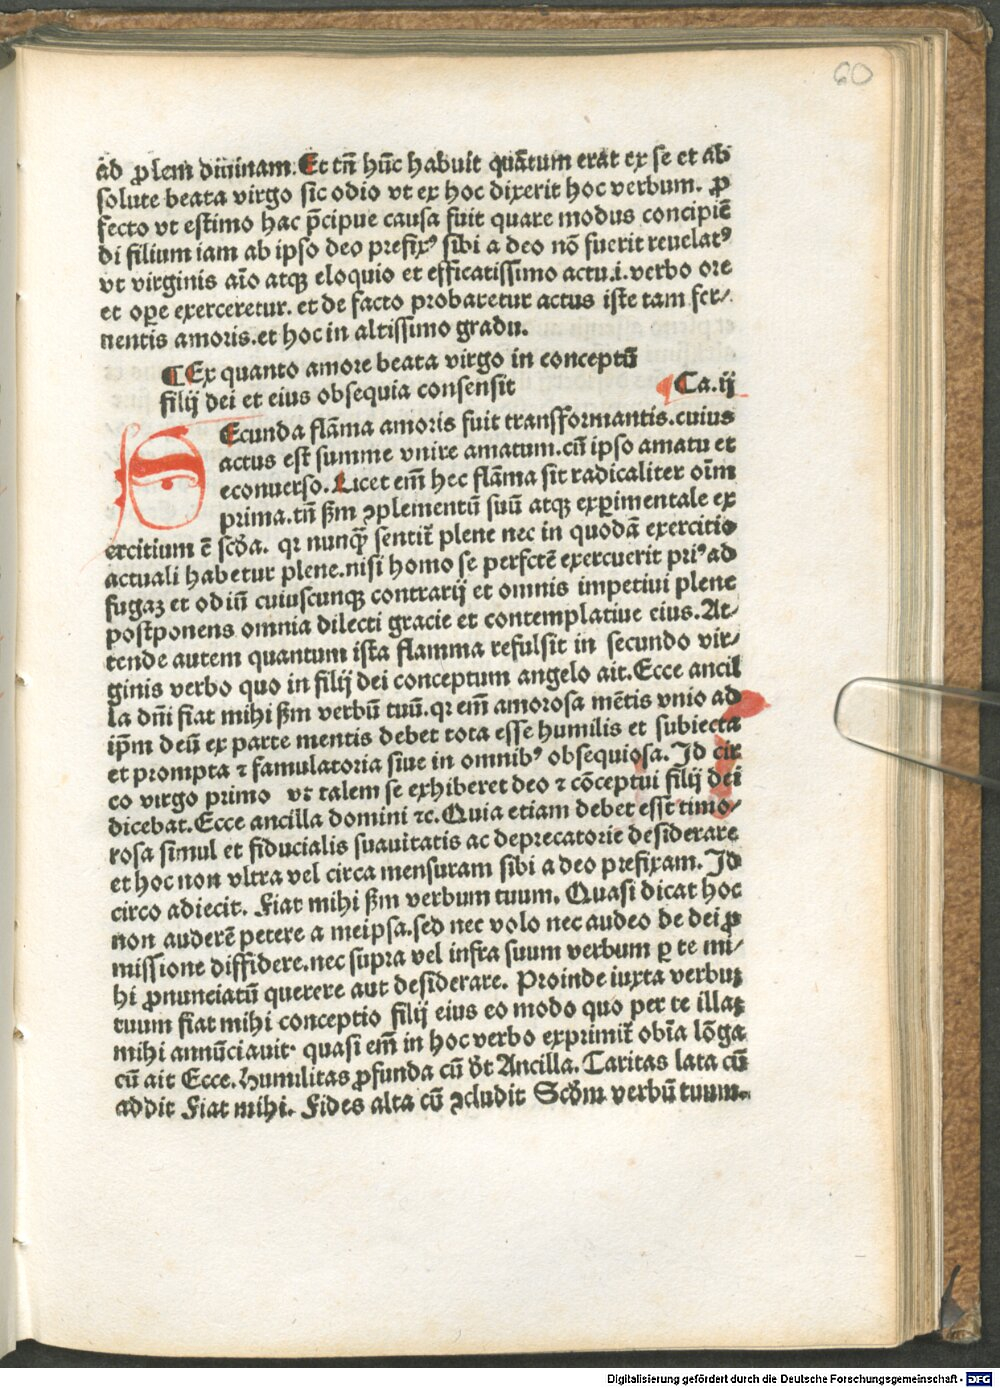 60
ad ꝓlem diuinam. Et tñ hūc habuit quātum erat ex se et ab
solute beata virgo sic odio vt ex hoc dixerit hoc verbum. ꝓ
fecto vt estimo hac p̄cipue causa fuit quare modus concipiē
di filium iam ab ipso deo prefixꝰ sibi a deo nō fuerit reuelatꝰ
vt virginis aīo atqꝫ eloquio et efficatissimo actu.i.verbo ore
et oꝑe exerceretur. et de facto probaretur actus iste tam fer/
uentis amoris.et hoc in altissimo gradu.
¶Ex quanto amore beata virgo in conceptū
filij dei et eius obsequia consensit ¶Ca.ij
SEcunda flāma amoris fuit transformantis.cuius
actus est summe vnire amatum.cū ipso amatu et
econuerso. Licet em̄ hec flāma sit radicaliter oīm
prima.tñ ẜm ꝯplementū suū atqꝫ exꝑimentale ex
ercitium ē scḋa. qꝛ nunqꝫ̄ sentit᷑ plene nec in quodā exercitio
actuali habetur plene.nisi homo se perfctē exercuerit priꝰ ad
fugaꝫ et odiū cuiuscunqꝫ contrarij et omnis impetiui plene
postponens omnia dilecti gracie et contemplatiue eius.At/
tende autem quantum ista flamma refulsit in secundo vir/
ginis verbo quo in filij dei conceptum angelo ait.Ecce ancil
la dn̄i fiat mihi ẜm verbū tuū.qꝛ em̄ amorosa mētis vnio ad
ip̄m deū ex parte mentis debet tota esse humilis et subiecta
et prompta ⁊ famulatoria siue in omnibꝰ obsequiosa. Id cir
co virgo primo vt talem se exhiberet deo ⁊ cōceptui filij dei
dicebat.Ecce ancilla domini ⁊c.Quia etiam debet esse timo/
rosa simul et fiducialis suauitatis ac deprecatorie desiderare
et hoc non vltra vel circa mensuram sibi a deo prefixam. Id
circo adiecit. Fiat mihi ẜm verbum tuum. Quasi dicat hoc
non auderē petere a meipsa.sed nec volo nec audeo de dei ꝓ
missione diffidere.nec supra vel infra suum verbum ꝑ te mi/
hi ꝓnunciatū querere aut desiderare. Proinde iuxta verbuꝫ
tuum fiat mihi conceptio filij eius eo modo quo per te illaꝫ
mihi annūciauit· quasi em̄ in hoc verbo exprimit᷑ obīa lōga
cū ait Ecce. Humilitas ꝓfunda cū ḋt Ancilla. Caritas lata cū
addit Fiat mihi. Fides alta cū ꝯcludit Scḋm verbū tuum.
Digitalisierung gefördert durch die Deutsche Forschungsgemeinschaft - DFG